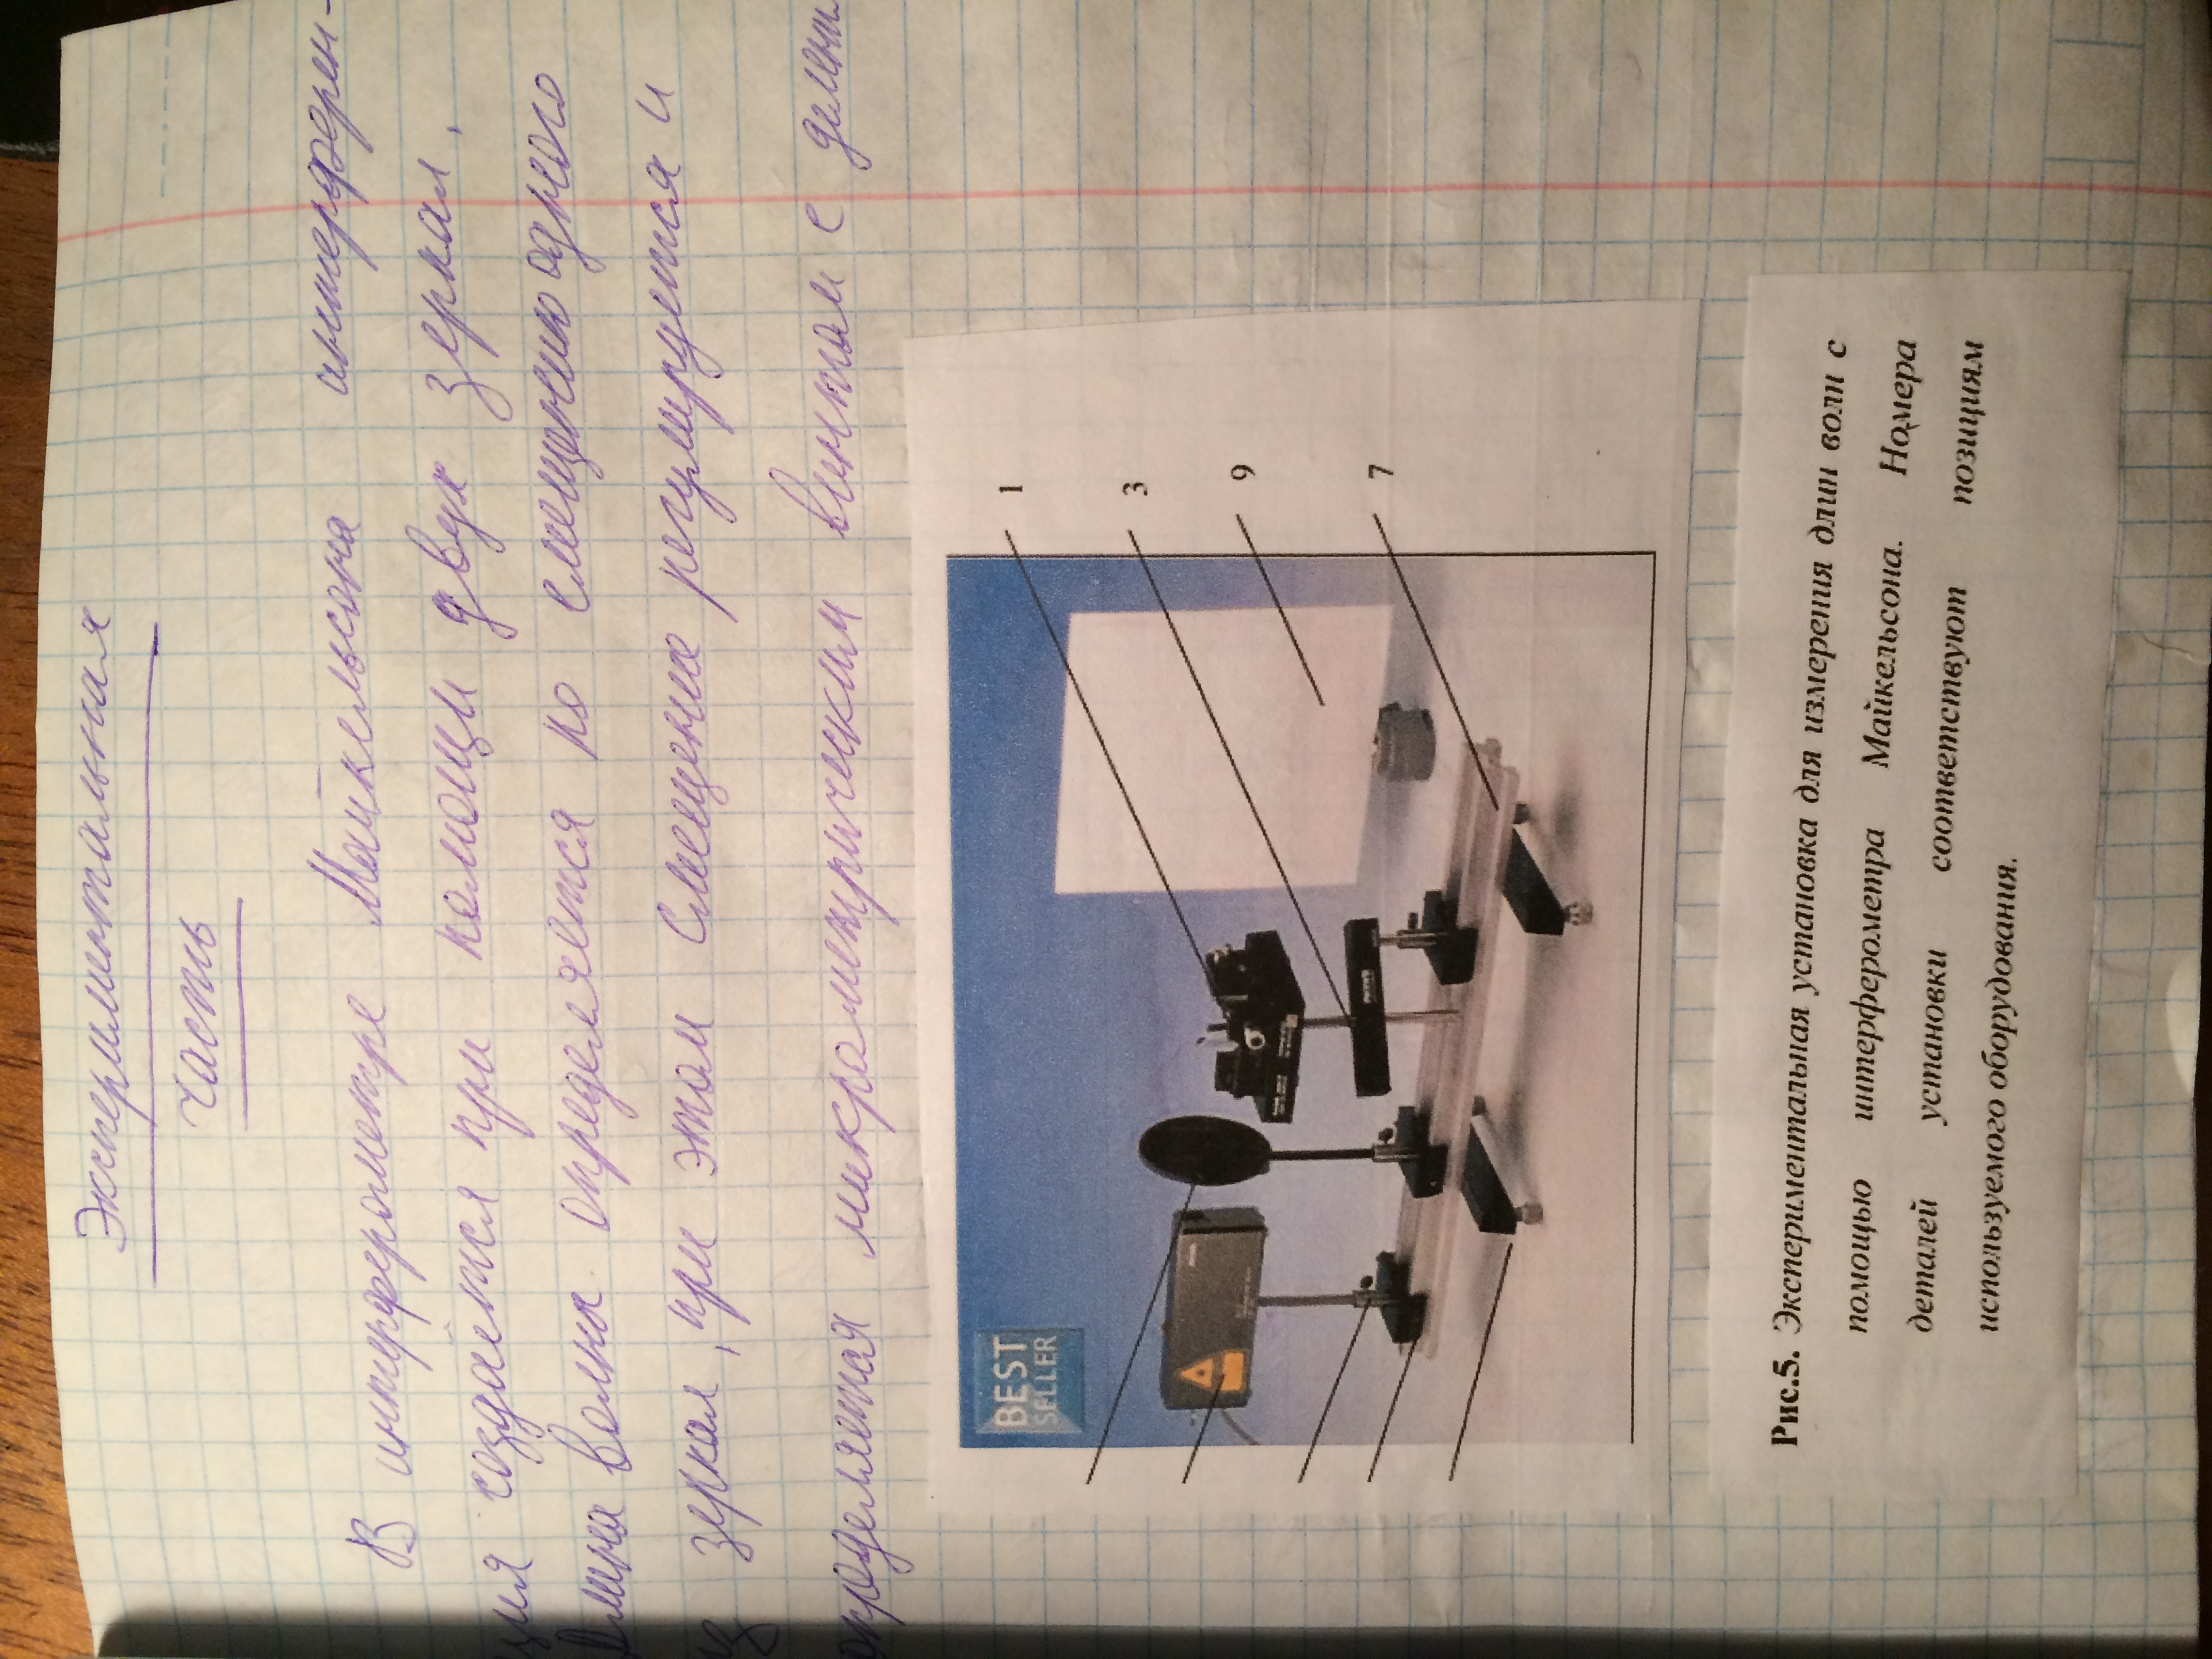 Экспериментальная
часть
В интерферометре Майкельсона интерферен-
ция создаётся при помощи двух зеркал.
длина волны определяется по смещению одного
из зеркал, при этом смещение регулируется и
определяется микрометрическим винтом с делени
BEST
SELLER
1
3
9
7
Рис.5. Экспериментальная установка для измерения длин волн с
помощью интерферометра Майкельсона. Номера
деталей установки соответствуют позициям
используемого оборудования.